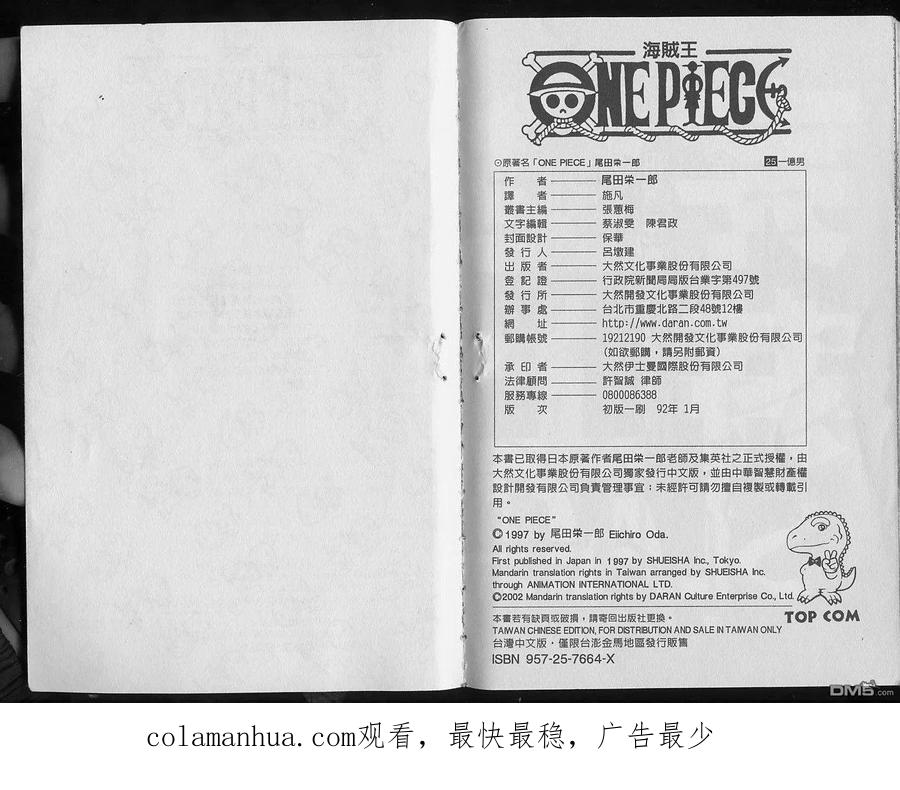 海賊王
ONE PIECE
⊙原著名「ONE PIECE」尾田栄一郎 25 一億男
作者 尾田栄一郎
譯者 施凡
叢書主編 張蕙梅
文字編輯 蔡淑雯 陳君政
封面設計 保華
發行人 呂墩建
出版者 大然文化事業股份有限公司
登記證 行政院新聞局局版台業字第497號
發行所 大然開發文化事業股份有限公司
辦事處 台北市重慶北路二段48號12樓
網址 http://www.daran.com.tw
郵購帳號 19212190 大然開發文化事業股份有限公司
(如欲郵購，請另附郵資)
承印者 大然伊士曼國際股份有限公司
法律顧問 許智誠 律師
服務專線 0800086388
版次 初版一刷 92年 1月
本書已取得日本原著作者尾田栄一郎老師及集英社之正式授權，由
大然文化事業股份有限公司獨家發行中文版，並由中華智慧財產權
設計開發有限公司負責管理事宜；未經許可請勿擅自複製或轉載引
用。
“ONE PIECE”
©1997 by 尾田栄一郎 Eiichiro Oda.
All rights reserved.
First published in Japan in 1997 by SHUEISHA Inc., Tokyo.
Mandarin translation rights in Taiwan arranged by SHUEISHA Inc.
through ANIMATION INTERNATIONAL LTD.
©2002 Mandarin translation rights by DARAN Culture Enterprise Co., Ltd.
TOP COM
本書若有缺頁或破損，請寄回出版社更換。
TAIWAN CHINESE EDITION, FOR DISTRIBUTION AND SALE IN TAIWAN ONLY
台灣中文版，僅限台澎金馬地區發行販售
ISBN 957-25-7664-X
DM5.com
colamanhua.com观看，最快最稳，广告最少